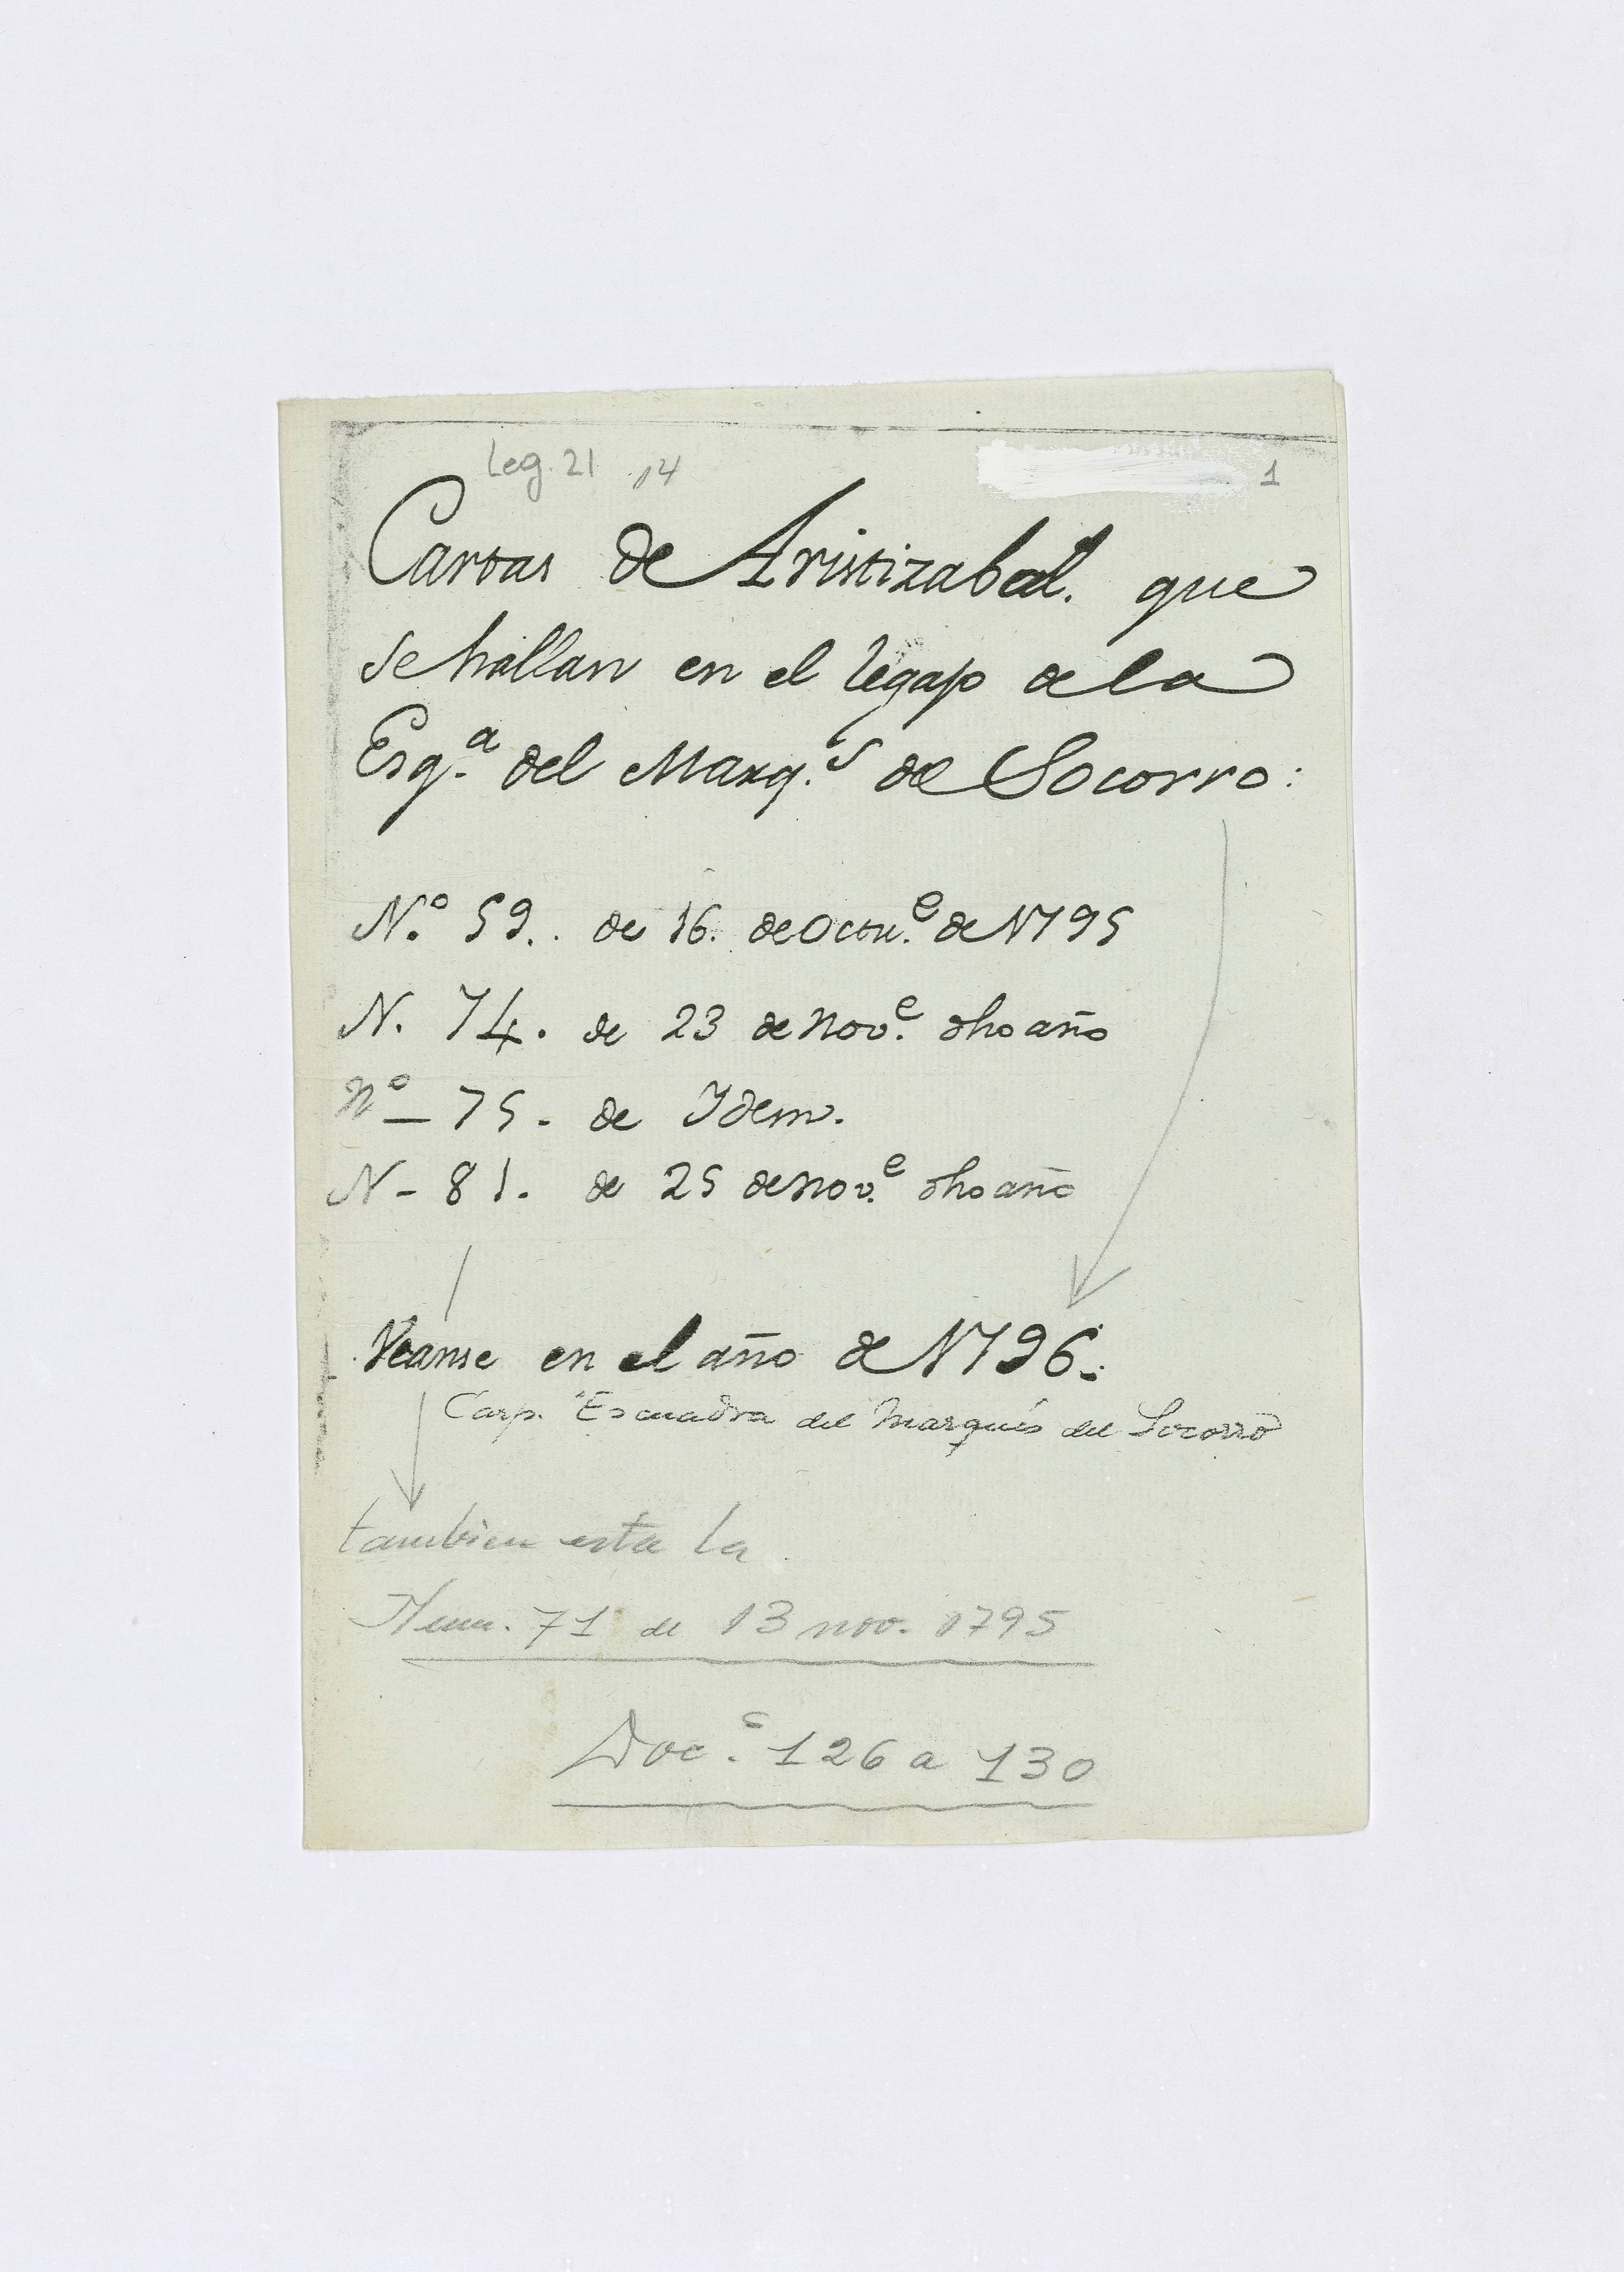 Leg. 21 14
1
Cartas de Aristizabal. que
se hallan en el legajo de la
Esq.ª del Marq.s de Socorro:
N.º 59.. de 16. de Octu.e de 1795
N. 74. de 23 de Nov.e dho año
Nº - 75. de Idem.
N - 81. de 25 de Nov.e dho año
Veanse en el año de 1796.:
Carp. "Escuadra del Marqués del Socorro
tambien esta la
Num. 71 de 13 nov. 1795
Doc.s 126 a 130